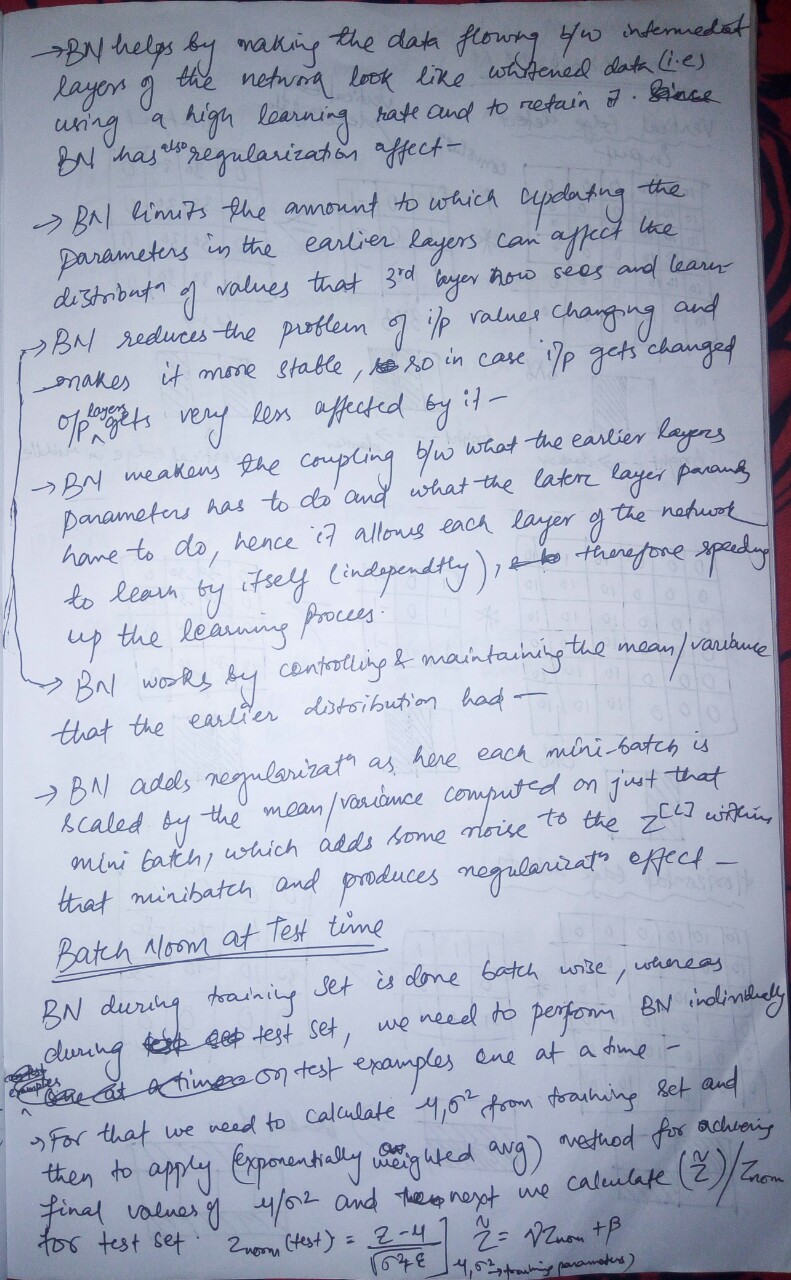 →BN helps by making the data flowing b/w intermediat
layers of the network look like whitened data (i.e)
using a high learning rate and to retain it. Since
BN has also regularization affect-
→ BN limits the amount to which updating the
parameters in the earlier layers can affect the
distributn of values that 3rd layer now sees and learn-
→ BN reduces the problem of i/p values changing and
makes it more stable, so in case i/p gets changed
o/p layers gets very less affected by it-
→ BN weakens the coupling b/w what the earlier layers
parameters has to do and what the later layer params
have to do, hence it allows each layer of the network
to learn by itself (independtly), therefore speeding
up the learning process.
→ BN works by controlling & maintaining the mean/variance
that the earlier distribution had-
→ BN adds regularizatn as here each mini-batch is
scaled by the mean/variance computed on just that
mini batch, which adds some noise to the Z[L] within
that minibatch and produces regularizatn effect-
Batch Norm at Test time
BN during training set is done batch wise, whereas
during test set test set, we need to perform BN individually
examples one at a time on test examples one at a time-
→For that we need to calculate μ,σ² from training set and
then to apply (exponentially weighted avg) method for achieving
final values of μ/σ² and next we calculate (Z̃)/Znorm
for test set. Znorm (test) = Z-μ/√σ²+ε ] Z̃ = γZnorm + β
μ,σ²→training parameters)